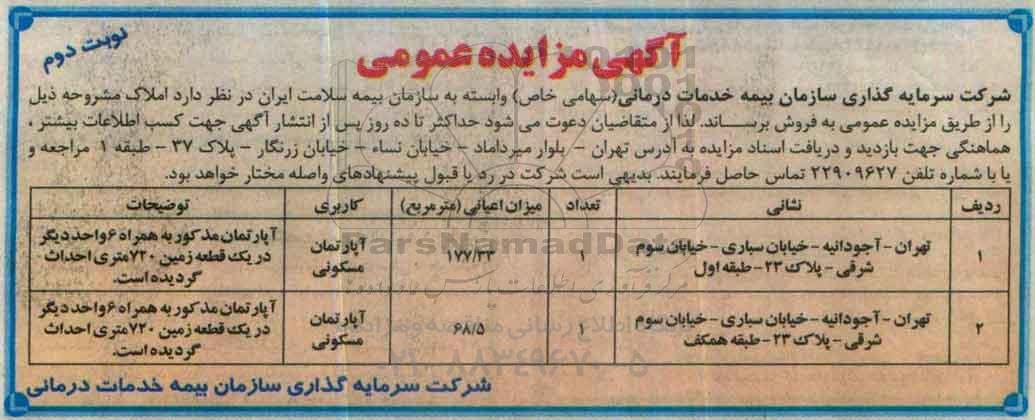 نوبت دوم
آگهی مزایده عمومی
شرکت سرمایه گذاری سازمان بیمه خدمات درمانی(سهامی خاص) وابسته به سازمان بیمه سلامت ایران در نظر دارد املاک مشروحه ذیل
را از طریق مزایده عمومی به فروش برساند. لذا از متقاضیان دعوت می شود حداکثر تا ده روز پس از انتشار آگهی جهت کسب اطلاعات بیشتر ،
هماهنگی جهت بازدید و دریافت اسناد مزایده به آدرس تهران - بلوار میرداماد - خیابان نساء - خیابان زرنگار - پلاک ۳۷ - طبقه ۱ مراجعه و
یا با شماره تلفن ۲۲۹۰۹۶۲۷ تماس حاصل فرمایند. بدیهی است شرکت در رد یا قبول پیشنهادهای واصله مختار خواهد بود.
ردیف نشانی تعداد میزان اعیانی (مترمربع) کاربری توضیحات
۱ تهران - آجودانیه - خیابان سباری - خیابان سوم شرقی - پلاک ۲۳ - طبقه اول ۱ ۱۷۷/۳۳ آپارتمان مسکونی آپارتمان مذکور به همراه ۶ واحد دیگر در یک قطعه زمین ۷۲۰ متری احداث گردیده است.
۲ تهران - آجودانیه - خیابان سباری - خیابان سوم شرقی - پلاک ۲۳ - طبقه همکف ۱ ۶۸/۵ آپارتمان مسکونی آپارتمان مذکور به همراه ۶ واحد دیگر در یک قطعه زمین ۷۲۰ متری احداث گردیده است.
شرکت سرمایه گذاری سازمان بیمه خدمات درمانی
ParsNamadData
۰۲۱-۸۸۳۴۹۶۷۰-۵